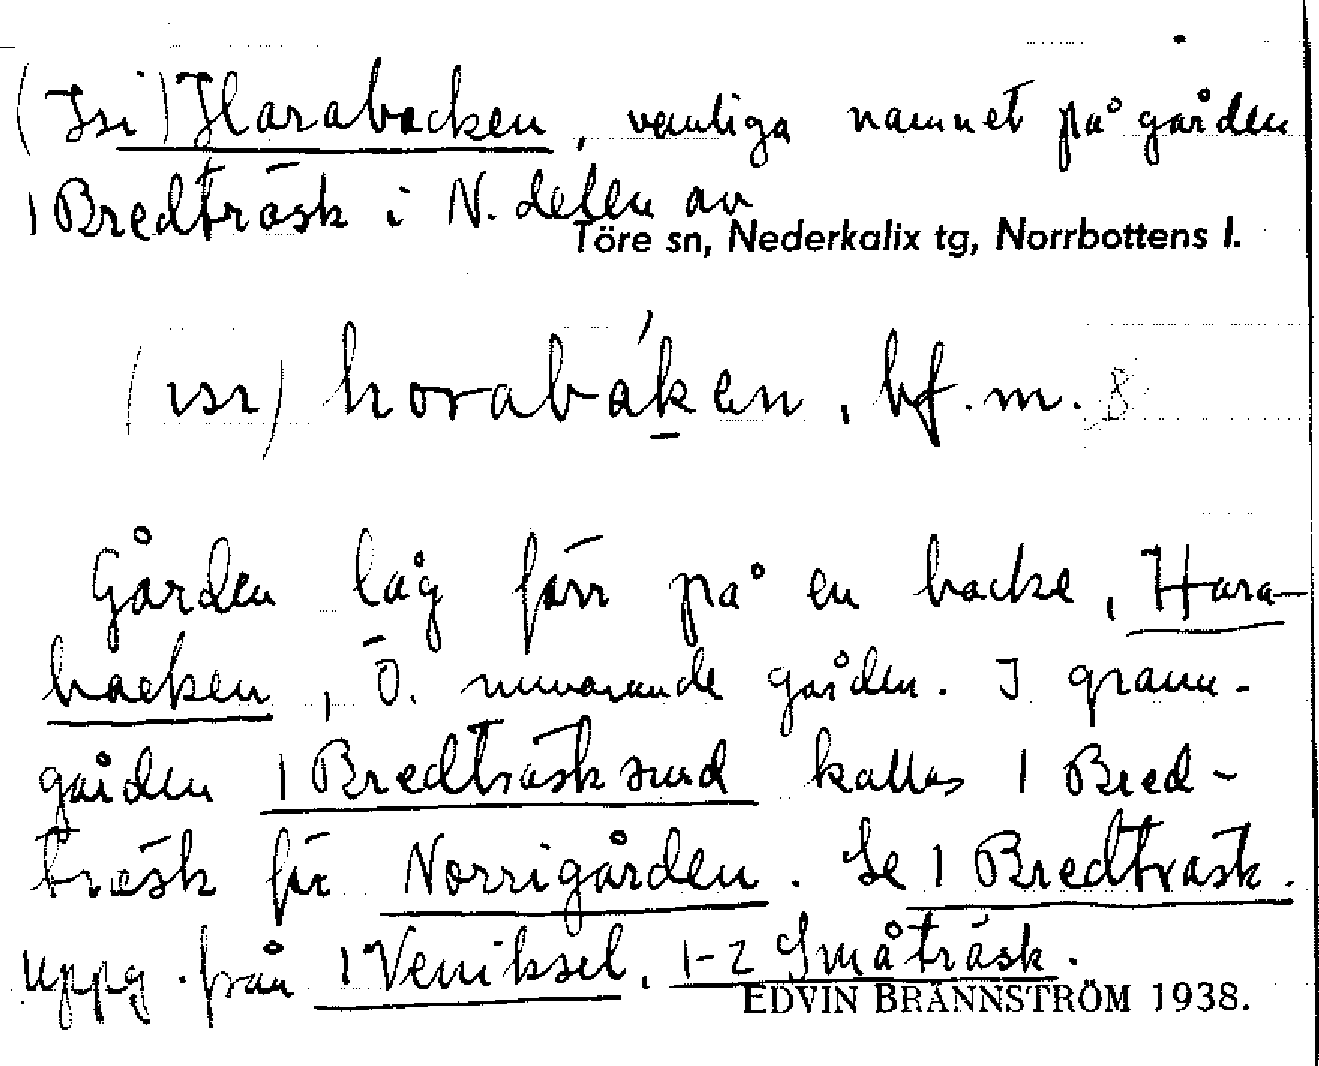 (Isi) Harabacken, vanliga namnet på gården
1 Bredträsk i N. delen av
Töre sn, Nederkalix tg, Norrbottens l.
(ısı) horabáken, bf. m.
Gården låg förr på en backe, Hara-
backen, Ö. nuvarande gården. I grann-
gården 1 Bredträsksund kallas 1 Bred-
träsk för Norrigården. Se 1 Bredträsk.
Uppg. från 1 Veniksel, 1-2 Småträsk.
EDVIN BRÄNNSTRÖM 1938.